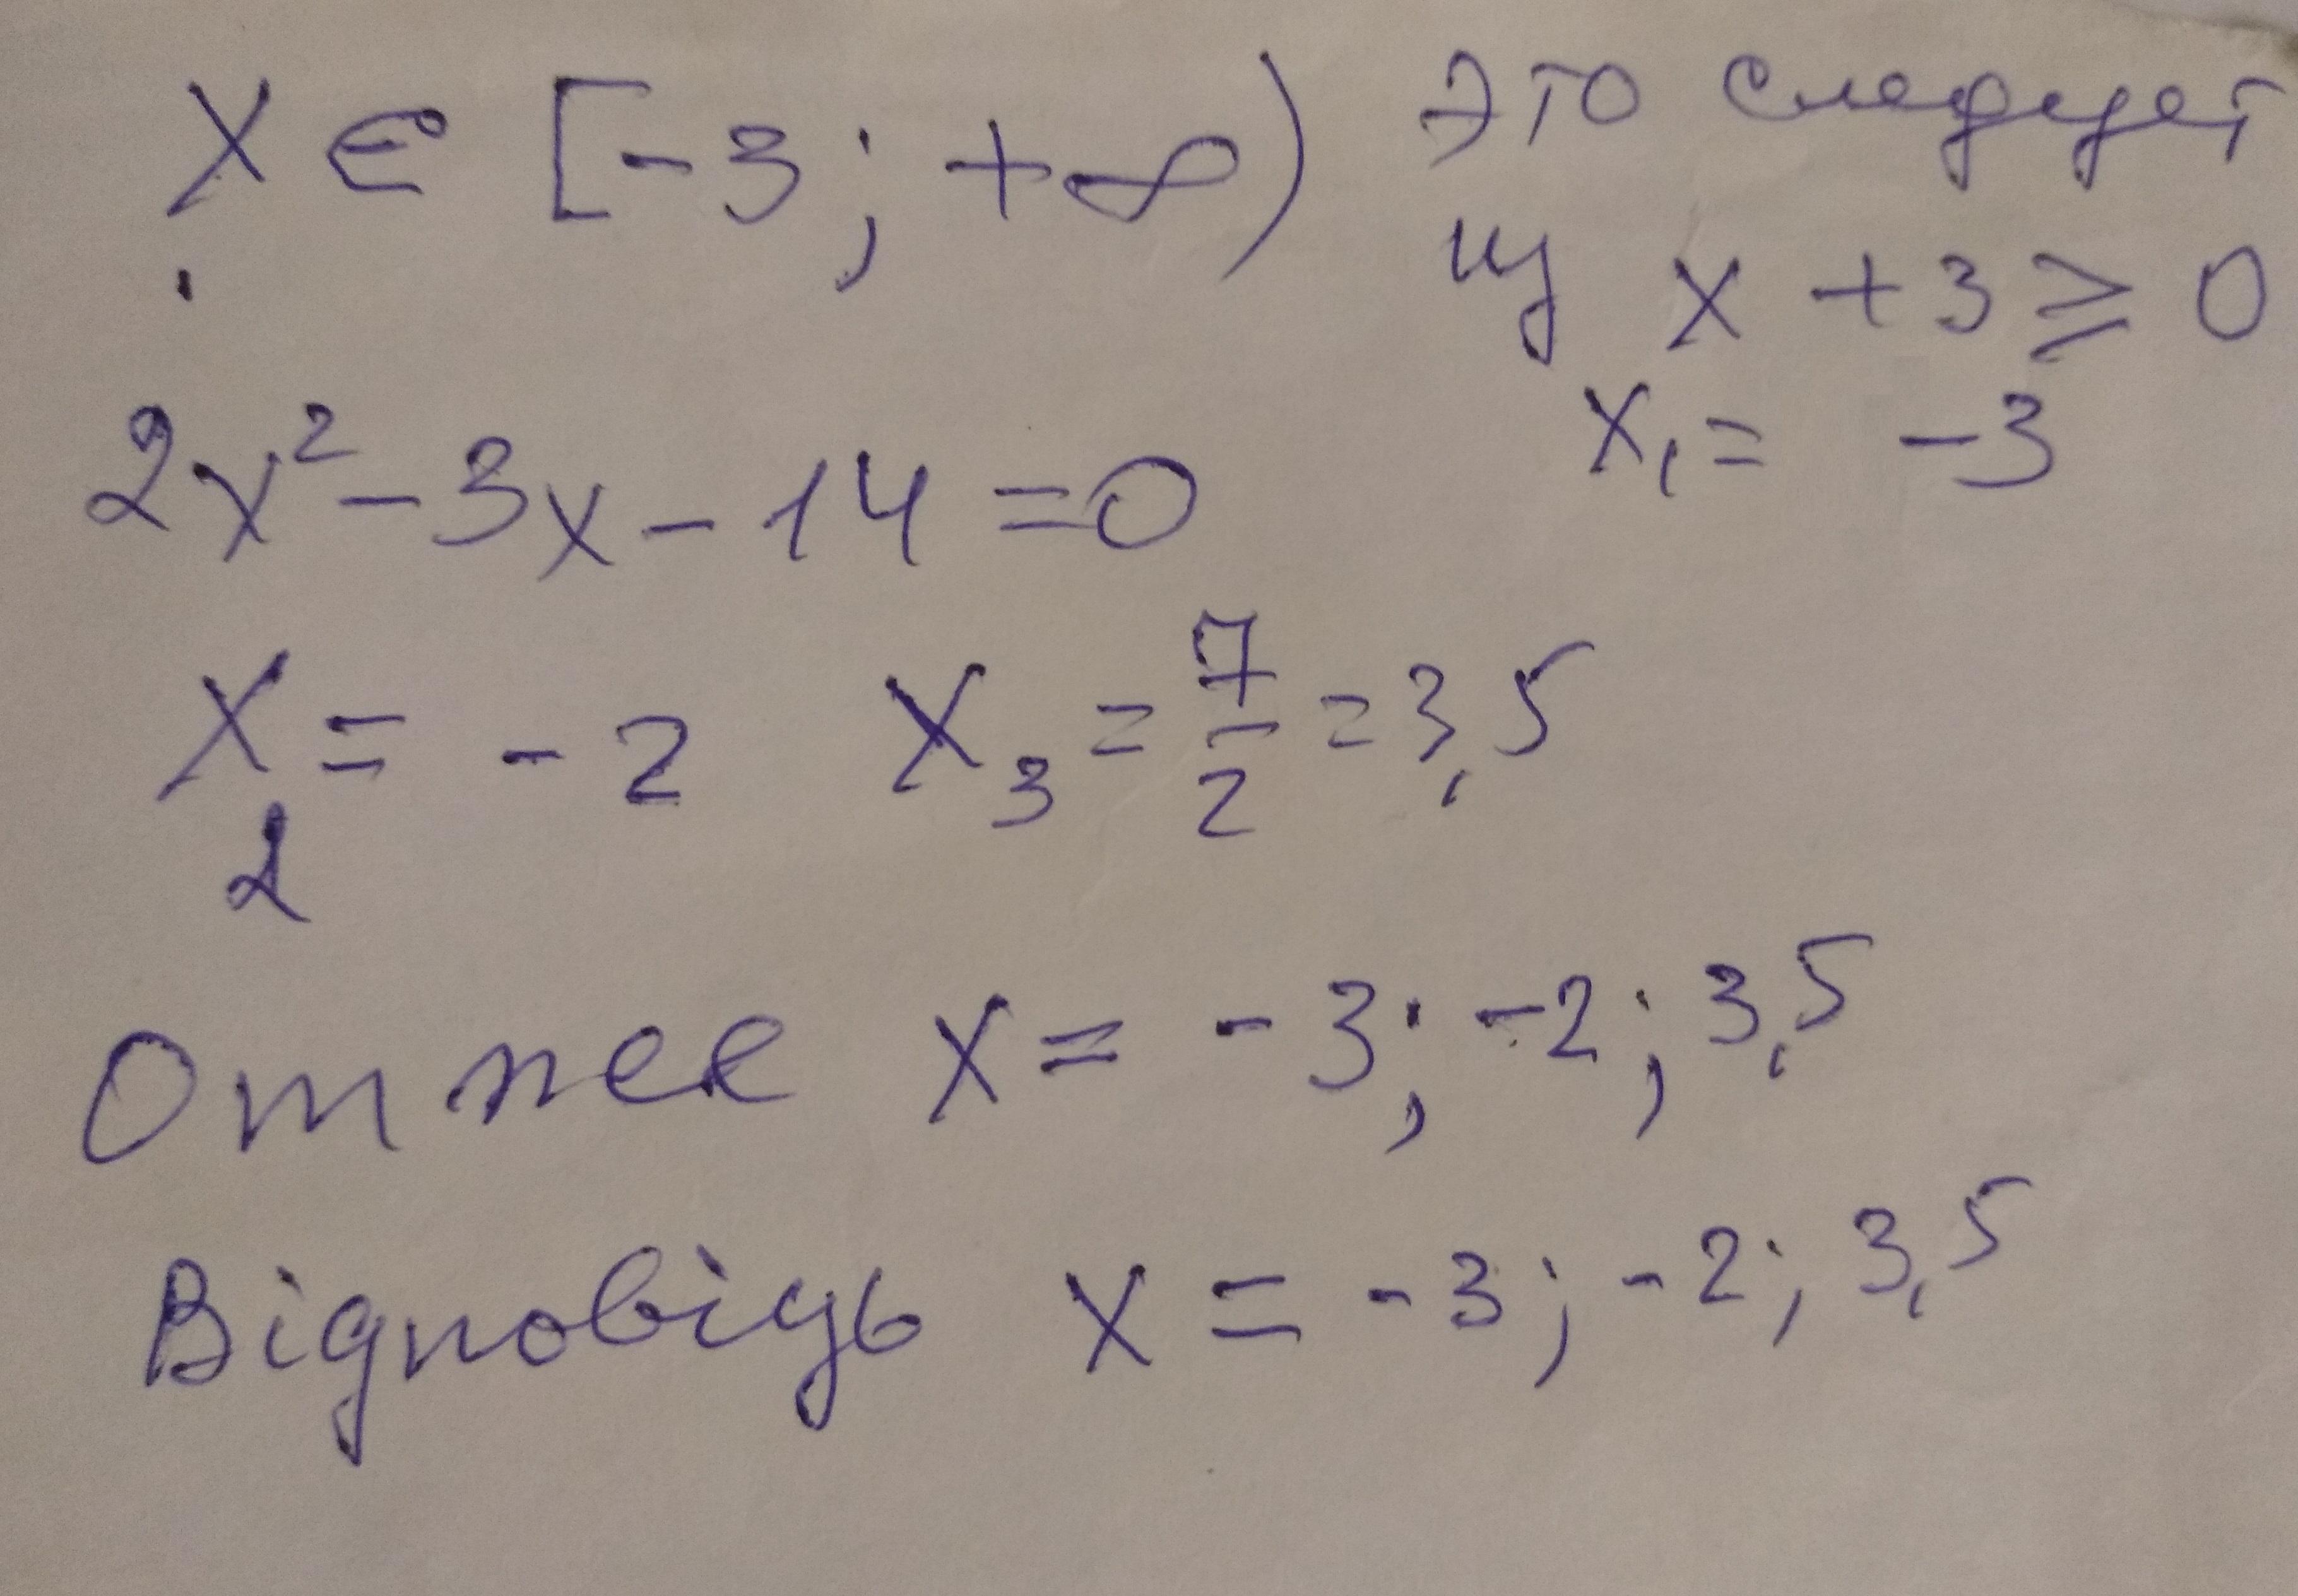 x ∈ [-3; +∞) это следует
из x + 3 ≥ 0
x₁ = -3
2x² - 3x - 14 = 0
x₂ = -2 x₃ = 7/2 = 3,5
Отже x = -3; -2; 3,5
Відповідь x = -3; -2; 3,5